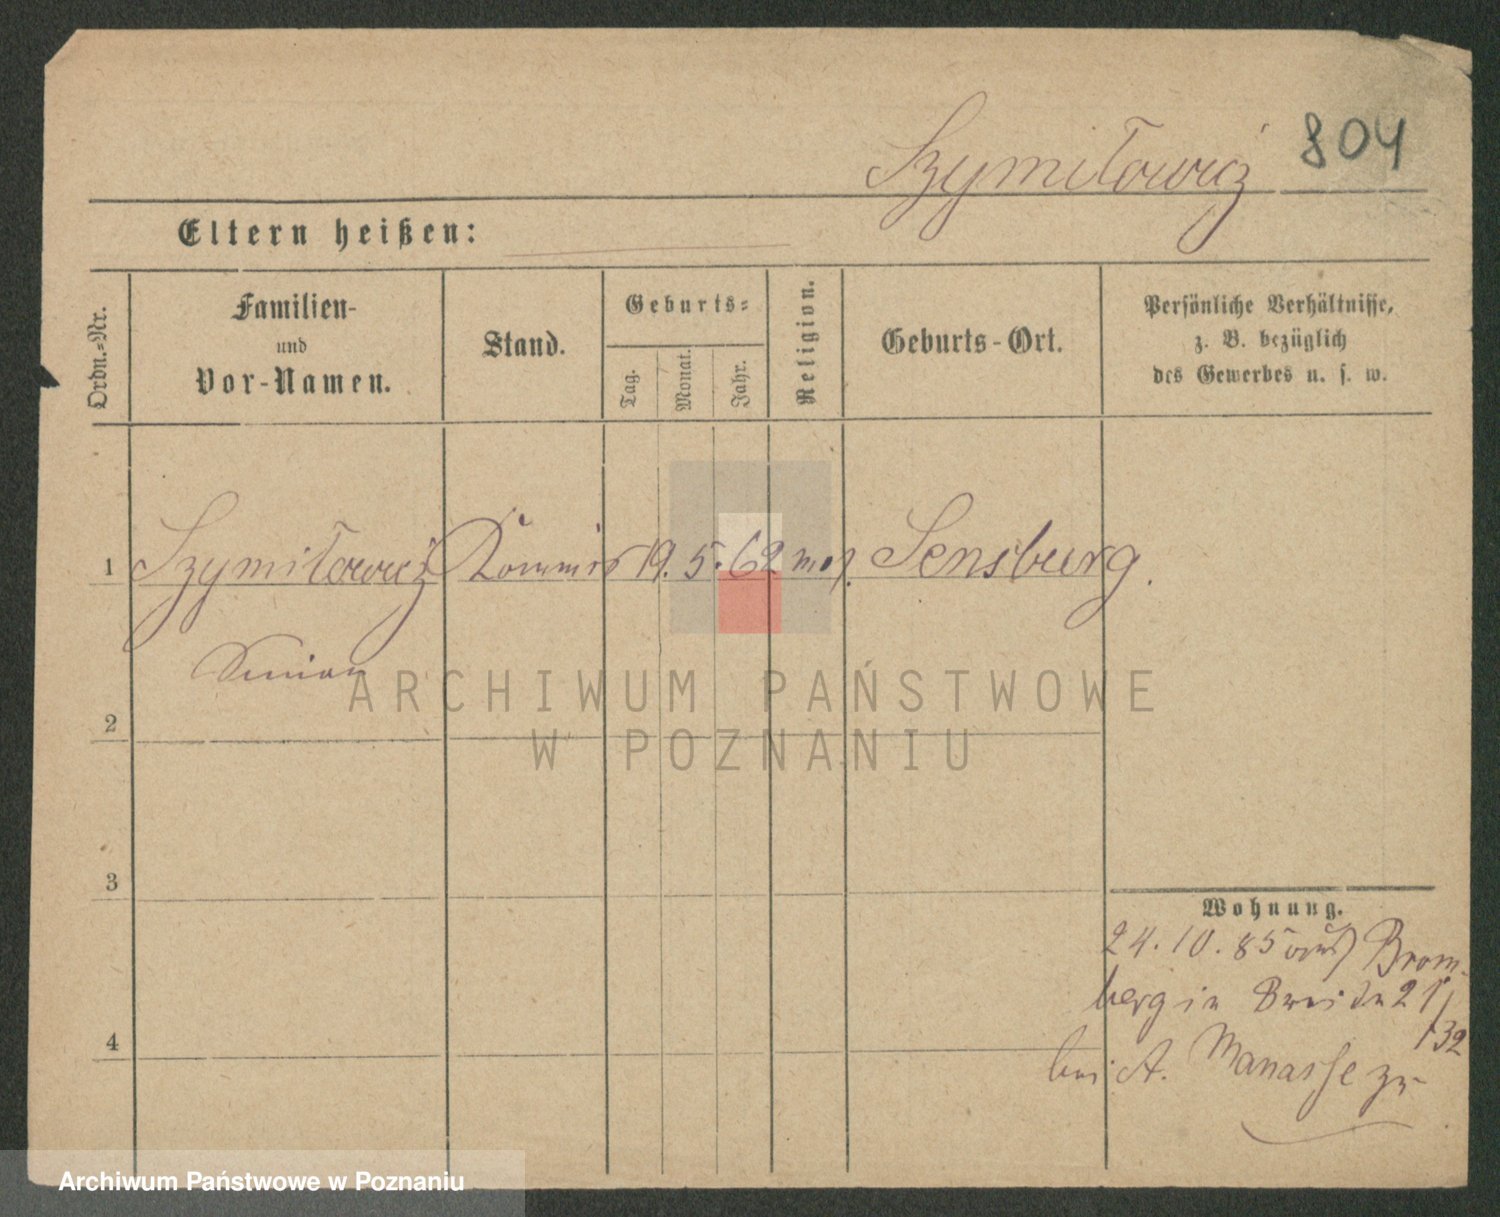 Szymiłowicz 804
Eltern heißen:
Ordn.-Nr.
Familien-
und
Vor-Namen.
Stand.
Geburts-
Tag.
Monat.
Jahr.
Religion.
Geburts-Ort.
Persönliche Verhältnisse,
z. B. bezüglich
des Gewerbes u. s. w.
1 Szymiłowicz Kommis 19. 5. 62 mos. Sensburg.
Simon
ARCHIWUM PAŃSTWOWE
W POZNANIU
2
3
4
Wohnung.
24. 10. 85 aus Brom-
berg in Breite 21/
132
bei A. Manasse zu
Archiwum Państwowe w Poznaniu